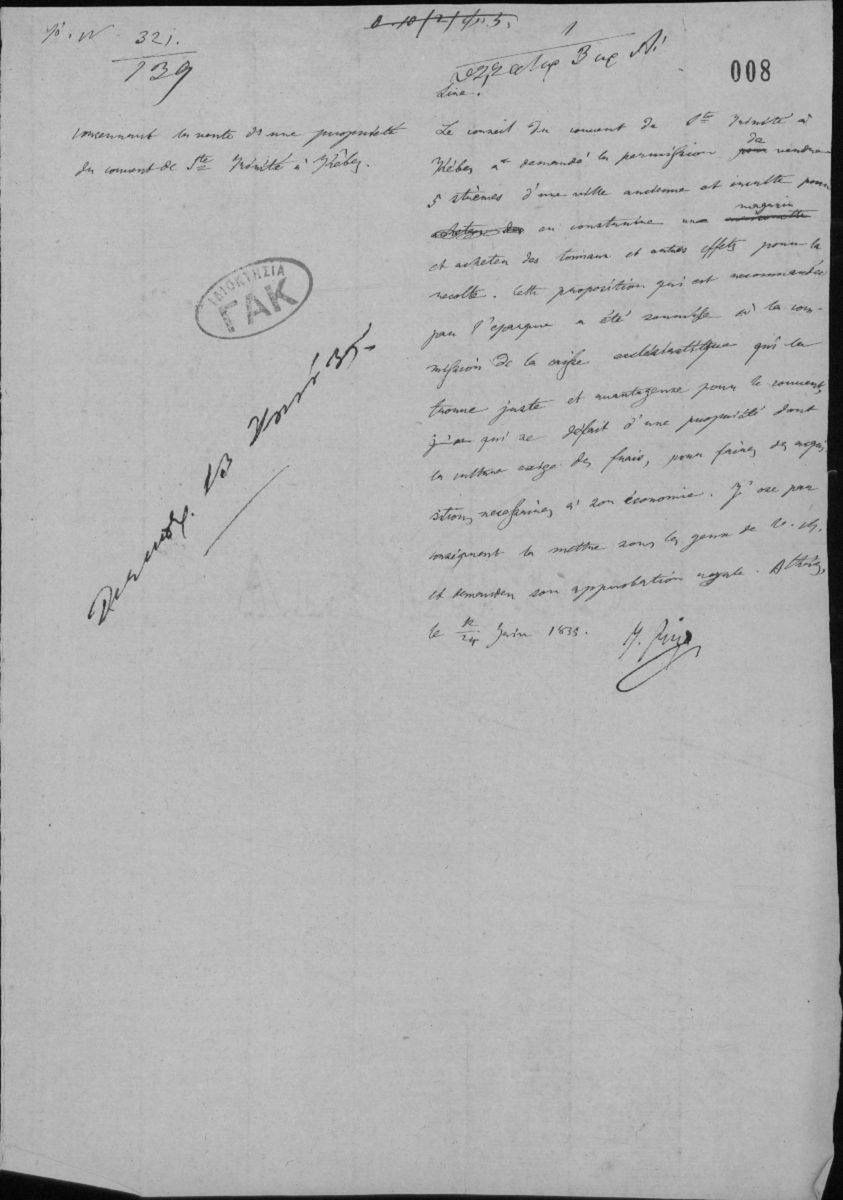 321.
139
concernant la vente d'une propriété
du couvent de Ste Trinité à Thèbes.
ΙΔΙΟΚΤΗΣΙΑ
ΓΑΚ
13
35
1
008
Sire.
Le conseil du couvent de Ste Trinité à
Thèbes a demandé la permission pour de vendre
5 strèmes d'une ancienne et inculte pour
acheter des en construire un magasin
et acheter des tonneaux et autres effets pour la
recolte. Cette proposition qui est recommandée
par l'éparque a été soumise à la com-
mission de la caisse ecclésiastique qui la
trouve juste et avantageuse pour le couvent,
qui se défait d'une propriété dont
la culture exige des frais, pour faire des acqui-
sitions nécessaires à son économie. J'ose par
conséquent la mettre sous les yeux de V. M.
et demander son approbation royale. Athènes,
le 12/24 Juin 1835.